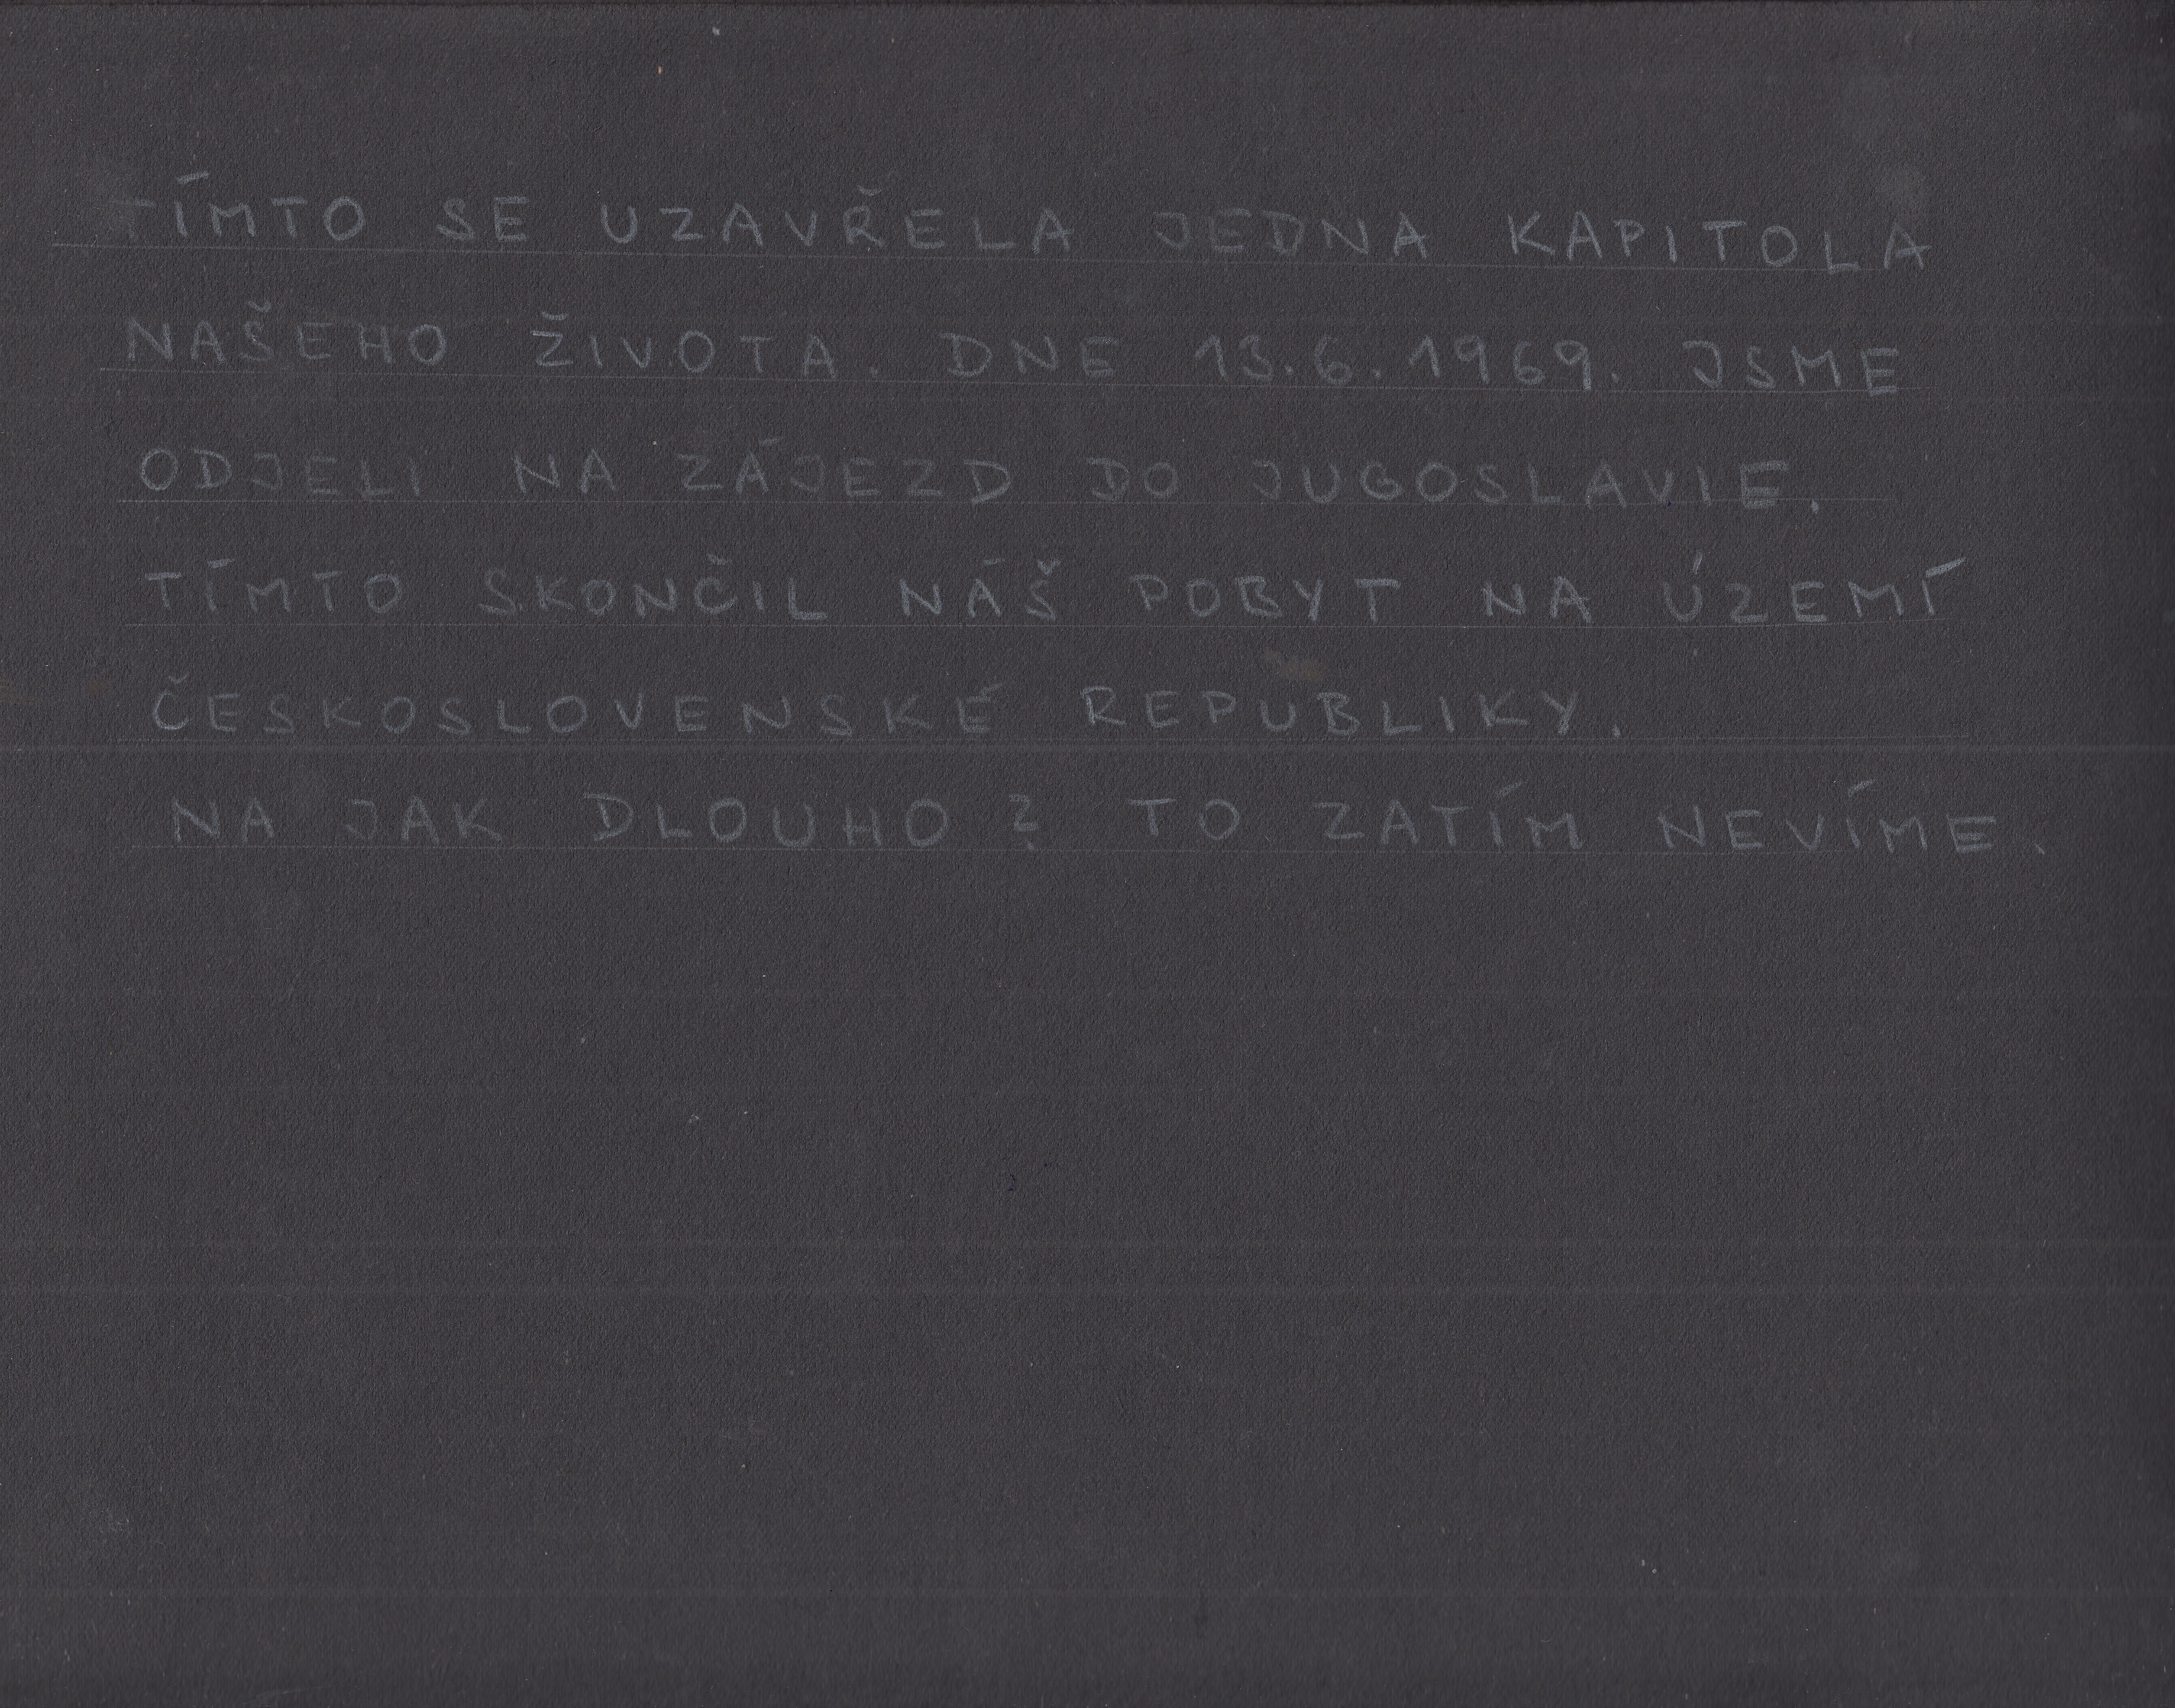 TÍMTO SE UZAVŘELA JEDNA KAPITOLA
NAŠEHO ŽIVOTA. DNE 13.6.1969. JSME
ODJELI NA ZÁJEZD DO JUGOSLAVIE.
TÍMTO SKONČIL NÁŠ POBYT NA ÚZEMÍ
ČESKOSLOVENSKÉ REPUBLIKY.
NA JAK DLOUHO? TO ZATÍM NEVÍME.